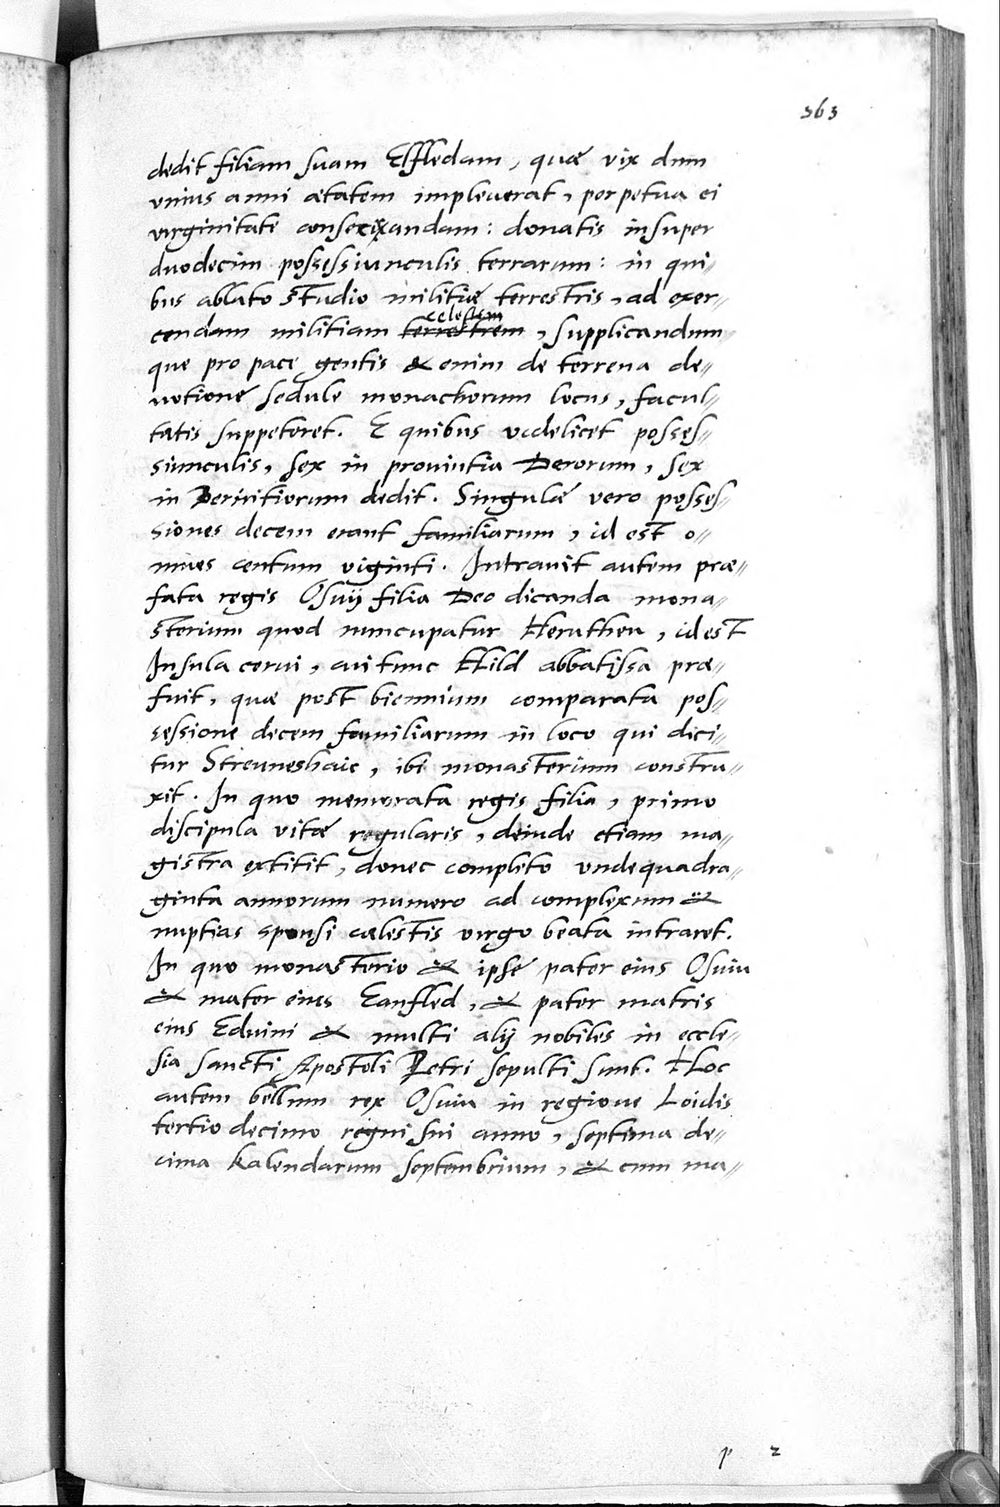 363
dedit filiam suam Elffledam, quæ vix dum
unius anni ætatem impleverat, perpetua ei
virginitate consecrandam: donatis insuper
duodecim possessiunculis terrarum: in qui,,
bus ablato studio militiæ terrestris, ad exer,,
cendam militiam terrestrem celestem, supplicandum,,
que pro pace gentis & enim de terrena de,,
votione sedule monachorum locus, facul,,
tatis suppeteret. E quibus videlicet posses,,
siunculis, sex in provintia Derorum, sex
in Bernitiorum dedit. Singulæ vero posses,,
siones decem erant familiarum, id est o,,
mnes centum viginti. Intravit autem præ,,
fata regis Osuij filia Deo dicanda mona,,
sterium quod nuncupatur Herutheu, id est
Insula cervi, cui tunc Hild abbatissa præ,,
fuit, quæ post biennium comparata pos,,
sessione decem familiarum in loco qui dici,,
tur Streuneshaic, ibi monasterium constru,,
xit. In quo memorata regis filia, primo
discipula vitæ regularis, deinde etiam ma,,
gistra extitit, donec completo undequadra,,
ginta annorum numero ad complexum &
nuptias sponsi cælestis virgo beata intraret.
In quo monasterio & ipse pater eius Osuiu
& mater eius Eanfled, & pater matris
eius Eduini & multi alij nobiles in eccle,,
sia sancti Apostoli Petri sepulti sunt. Hoc
autem bellum rex Osuiu in regione Loidis
tertio decimo regni sui anno, septima de,,
cima Kalendarum septembrium, & cum ma,,
p 2